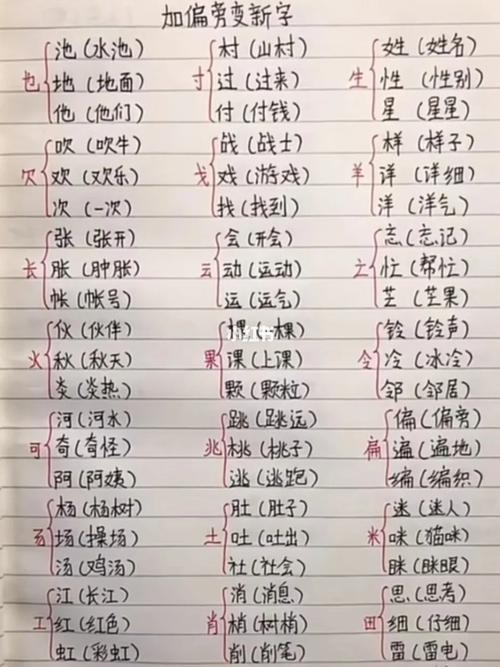 加偏旁变新字
也
池（水池）
地（地面）
他（他们）
寸
村（山村）
过（过来）
付（付钱）
生
姓（姓名）
性（性别）
星（星星）
欠
吹（吹牛）
欢（欢乐）
次（一次）
戈
战（战士）
戏（游戏）
找（找到）
羊
样（样子）
详（详细）
洋（洋气）
长
张（张开）
胀（肿胀）
帐（帐号）
云
会（开会）
动（运动）
运（运气）
亡
忘（忘记）
忙（帮忙）
芒（芒果）
火
伙（伙伴）
秋（秋天）
炎（炎热）
果
棵（一棵）
小红书
课（上课）
颗（颗粒）
令
铃（铃声）
冷（冰冷）
邻（邻居）
可
河（河水）
奇（奇怪）
阿（阿姨）
兆
跳（跳远）
桃（桃子）
逃（逃跑）
扁
偏（偏旁）
遍（遍地）
编（编织）
杨（杨树）
场（操场）
汤（鸡汤）
土
肚（肚子）
吐（吐出）
社（社会）
米
迷（迷人）
咪（猫咪）
眯（眯眼）
工
江（长江）
红（红色）
虹（彩虹）
肖
消（消息）
梢（树梢）
削（削笔）
田
思（思考）
细（仔细）
雷（雷电）